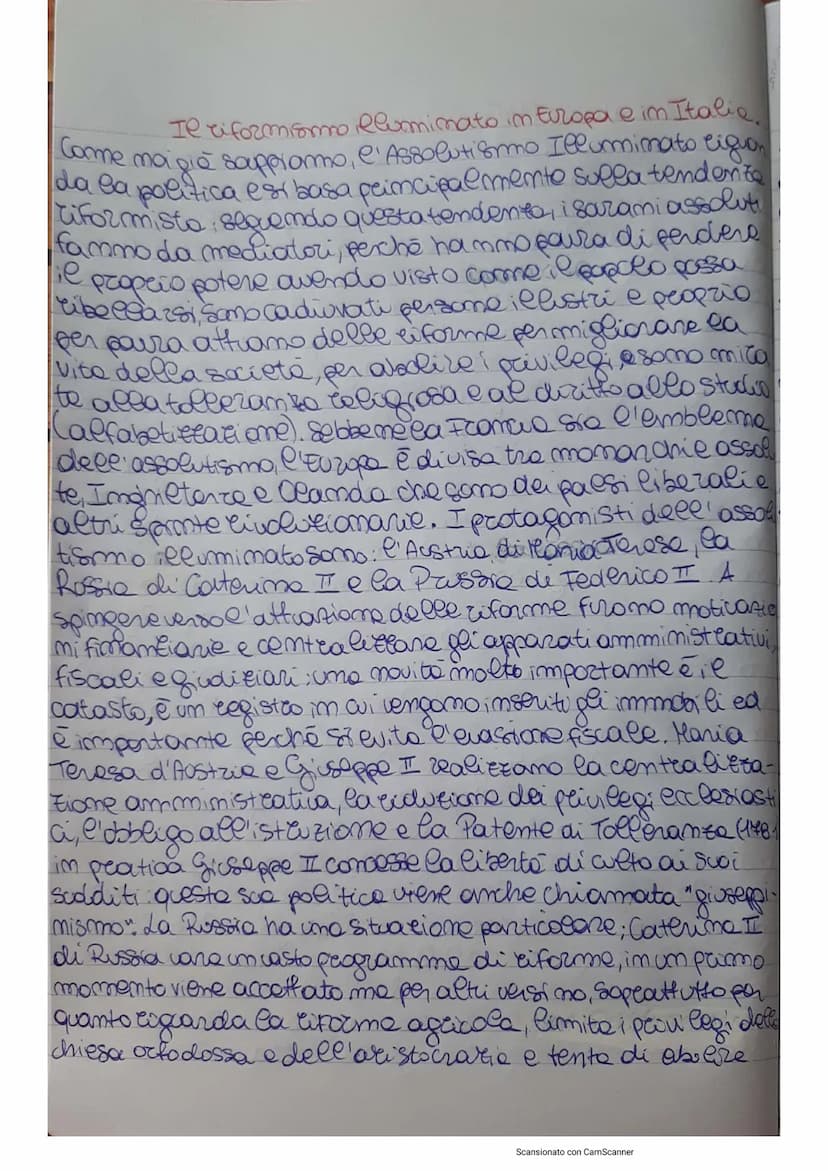 Il riformismo illuminato in Europa e in Italia.
Come mai già sappiamo, l'Assolutismo Illuminato riguar
da la politica e si basa principalmente sulla tendenza
riformista; seguendo questa tendenza, i sovrani assoluti
fanno da mediatori, perchè hanno paura di perdere
il proprio potere avendo visto come il popolo possa
ribellarsi, sono cadiuvati persone illustri e proprio
per paura attuano delle riforme per migliorare la
vita della società, per abolire i privilegi, e sono mira
te alla tolleranza religiosa e al diritto allo studio
(alfabetizzazione). Sebbene la Francia sia l'emblema
dell'assolutismo, l'Europa è divisa tra monarchie assol
te, Inghilterra e Olanda che sono dei paesi liberali e
altri spinte rivoluzionarie. I protagonisti dell'assol
tismo illuminato sono: l'Austria di Maria Teresa, la
Russia di Caterina II e la Prussia di Federico II. A
spingere verso l'attuazione delle riforme furono motivazio
ni finanziarie e centralizzare gli apparati amministrativi,
fiscali e giudiziari; una novità molto importante è il
catasto, è un registro in cui vengono inseriti gli immobili ed
è importante perchè si evita l'evasione fiscale. Maria
Teresa d'Austria e Giuseppe II realizzano la centralizza-
zione amministrativa, la riduzione dei privilegi ecclesiasti
ci, l'obbligo all'istruzione e la Patente di Tolleranza (178
in pratica Giuseppe II concesse la libertà di culto ai suoi
sudditi: questa sua politica viene anche chiamata "giuseppi-
nismo". La Russia ha una situazione particolare; Caterina II
di Russia vara un vasto programma di riforme, in un primo
momento viene accettato ma per altri versi no, sopratutto per
quanto riguarda la riforma agricola, limita i privilegi della
chiesa ortodossa e dell'aristocrazia e tenta di abolire
Scansionato con CamScanner